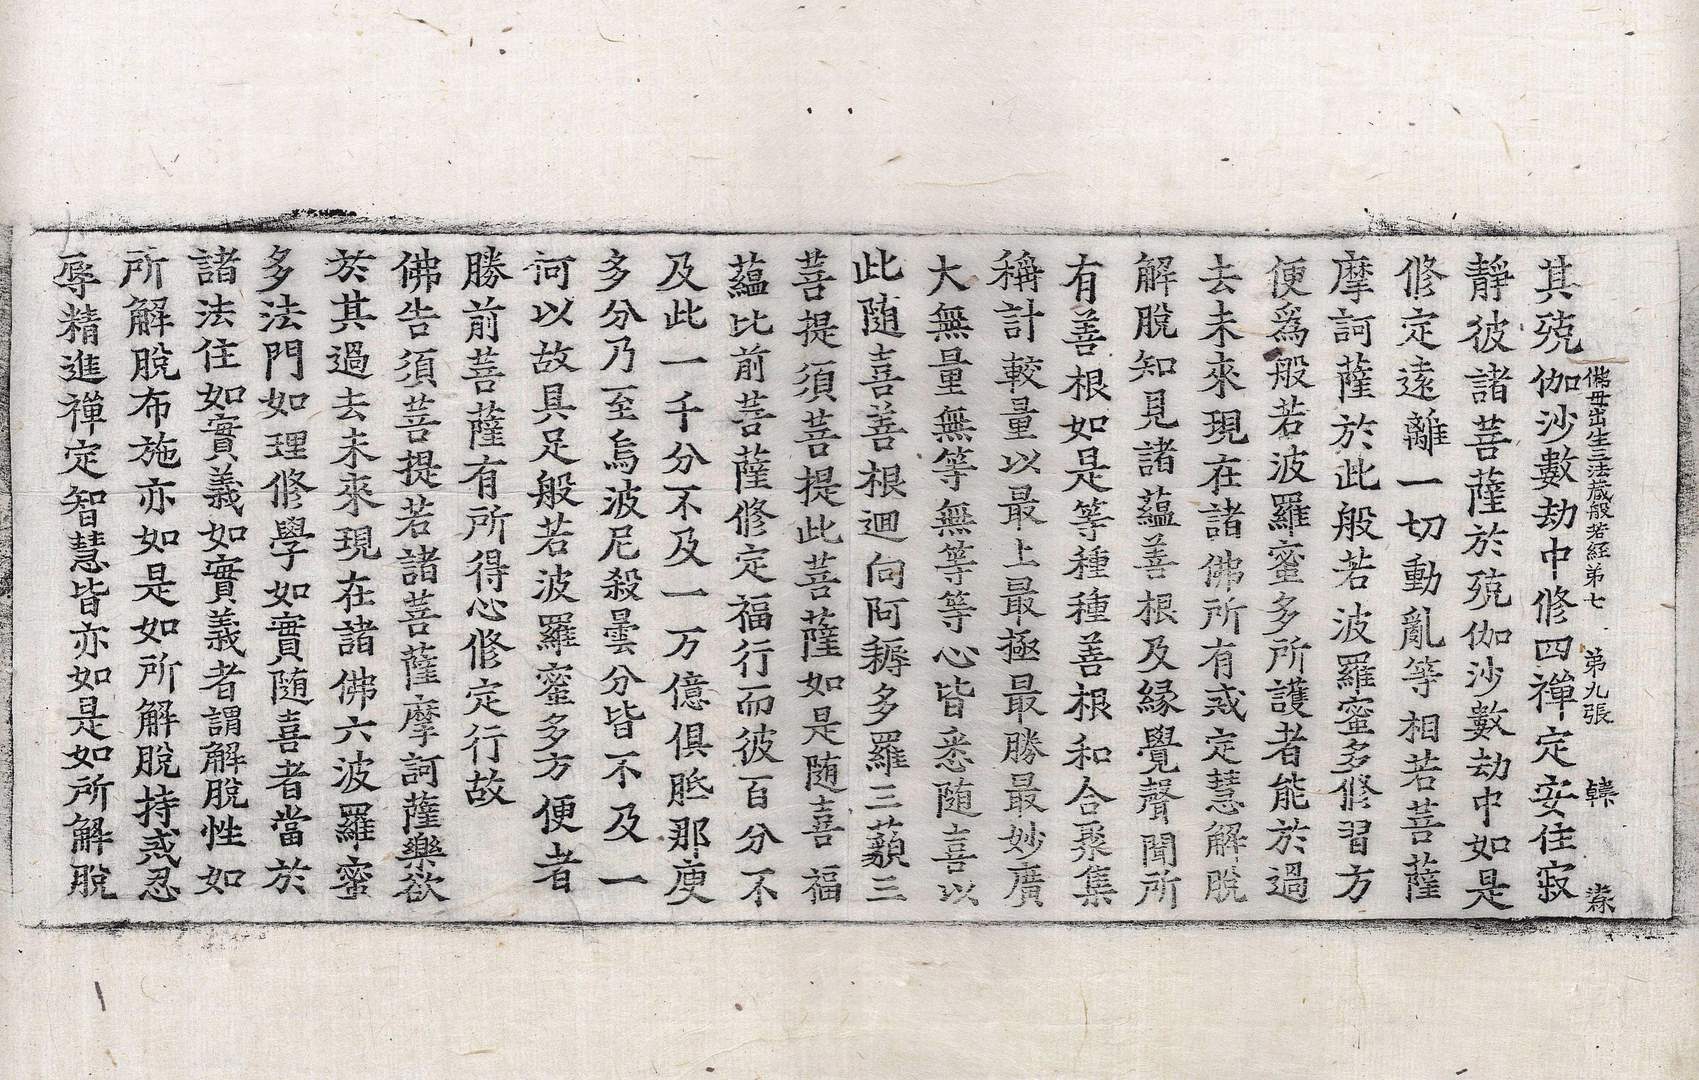 佛母出生三法蔵般若経第七 第九張 韓
其殑伽沙數劫中修四禪定安住寂
靜彼諸菩薩於殑伽沙數劫中如是
修定遠離一切動亂等相若菩薩
摩訶薩於此般若波羅蜜多修習方
便爲般若波羅蜜多所護者能於過
去未來現在諸佛所有戒定慧解脫
解脫知見諸蘊善根及緣覺聲聞所
有善根如是等種種善根和合聚集
稱計較量以最上最極最勝最妙廣
大無量無等無等等心皆悉隨喜以
此隨喜善根迴向阿耨多羅三藐三
菩提須菩提此菩薩如是隨喜福
蘊比前菩薩修定福行而彼百分不
及此一千分不及一万億俱胝那庾
多分乃至烏波尼殺曇分皆不及一
何以故具足般若波羅蜜多方便者
勝前菩薩有所得心修定行故
佛告須菩提若諸菩薩摩訶薩樂欲
於其過去未來現在諸佛六波羅蜜
多法門如理修學如實隨喜者當於
諸法住如實義如實義者謂解脫性如
所解脫布施亦如是如所解脫持戒忍
辱精進禪定智慧皆亦如是如所解脫